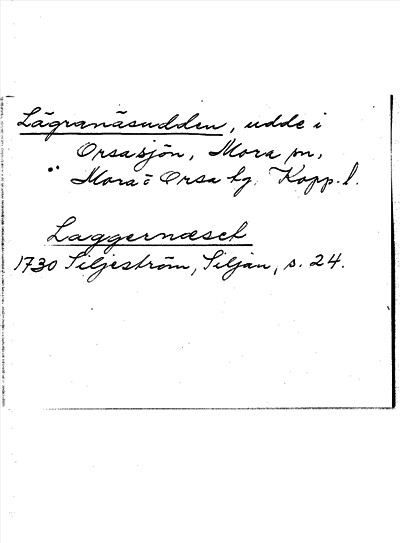 Lägranäsudden, udde i
Orsasjön, Mora sn,
Mora o Orsa tg. Kopp. l.
Laggernæset
1730 Siljeström, Siljan, s. 24.